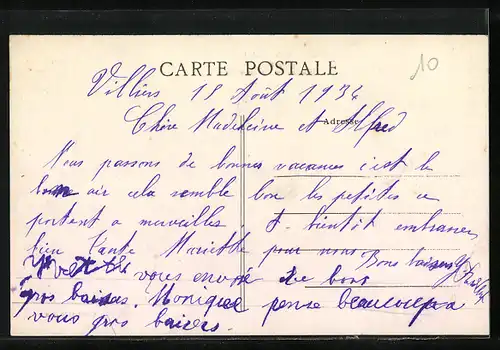 10
CARTE POSTALE
Villiers 18 Août 1934
Adresse
Chère Madeleine et Alfred
Nous passons de bonnes vacances c'est le
bonn air cela semble bon les petites se
portent a merveilles à bientôt embrassez
bien Tante Mariette pour nous
Bons baisers
vous envoie de bons
gros baisers. Monique pense beaucoup a
vous gros baisers.